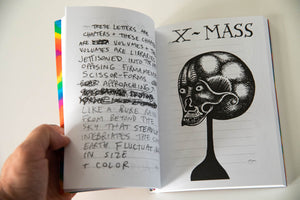 — THESE LETTERS ARE
CHAPTERS + THESE CHAPTERS
ARE VOLUMES + THESE
VOLUMES ARE LIBRARIES
JETTISONED INTO THE
OPPOSING FIRMAMENT
SCISSOR-FORMS
APPROACHING
LIKE A HUGE
FROM BEYOND THE
SKY THAT STEADILY
INEBRIATES THE
EARTH FLUCTUAT
IN SIZE
+ COLOR
X-MASS